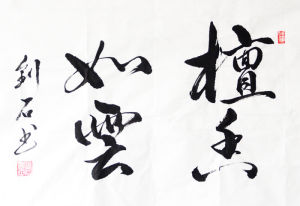 檀香
如雲
石书